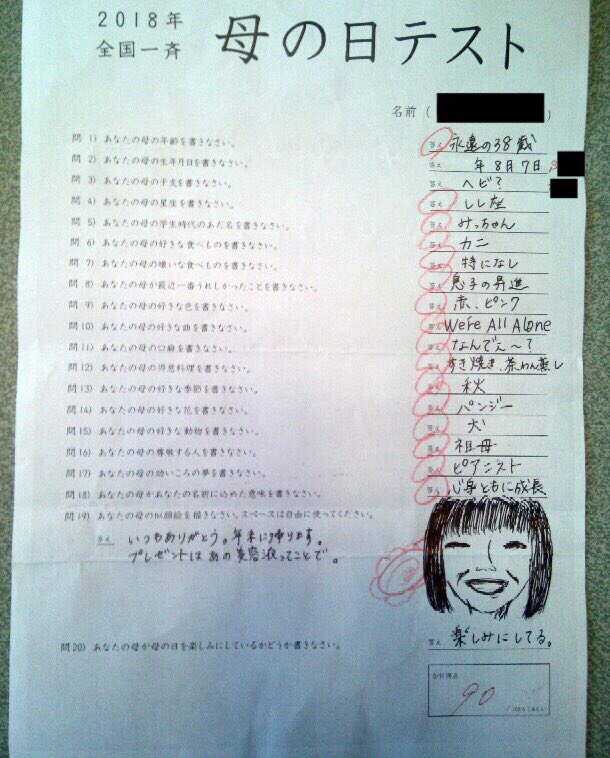 2018年
全国一斉
母の日テスト
名前 ( )
問 1) あなたの母の年齢を書きなさい。 答え 永遠の38歳
問 2) あなたの母の生年月日を書きなさい。 答え 年8月7日
問 3) あなたの母の干支を書きなさい。 答え ヘビ?
問 4) あなたの母の星座を書きなさい。 答え しし座
問 5) あなたの母の学生時代のあだ名を書きなさい。 答え みっちゃん
問 6) あなたの母の好きな食べものを書きなさい。 答え カニ
問 7) あなたの母の嫌いな食べものを書きなさい。 答え 特になし
問 8) あなたの母が最近一番うれしかったことを書きなさい。 答え 息子の昇進
問 9) あなたの母の好きな色を書きなさい。 答え 赤、ピンク
問10) あなたの母の好きな曲を書きなさい。 答え We're All Alone
問11) あなたの母の口癖を書きなさい。 答え なんでぇ〜?
問12) あなたの母の得意料理を書きなさい。 答え すき焼き、茶わん蒸し
問13) あなたの母の好きな季節を書きなさい。 答え 秋
問14) あなたの母の好きな花を書きなさい。 答え パンジー
問15) あなたの母の好きな動物を書きなさい。 答え 犬
問16) あなたの母の尊敬する人を書きなさい。 答え 祖母
問17) あなたの母の幼いころの夢を書きなさい。 答え ピアニスト
問18) あなたの母があなたの名前に込めた意味を書きなさい。 答え 心身ともに成長
問19) あなたの母の似顔絵を描きなさい。スペースは自由に使ってください。
答え いつもありがとう。年末に帰ります。
プレゼントはあの美容液ってことで。
問20) あなたの母が母の日を楽しみにしているかどうか書きなさい。 答え 楽しみにしてる。
合計得点
90